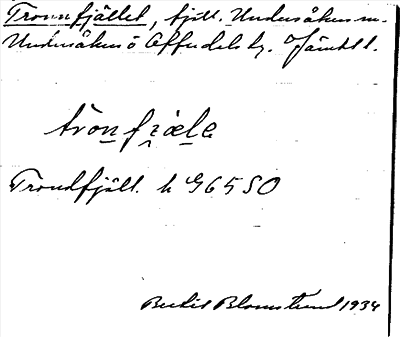 Tronnfjället, fjäll. Undersåkers sn.
Undersåkers o Offerdals tg. Jämtl l.
tronfjæle
Trondfjäll. h G65 SO
Bertil Blomstrand 1934